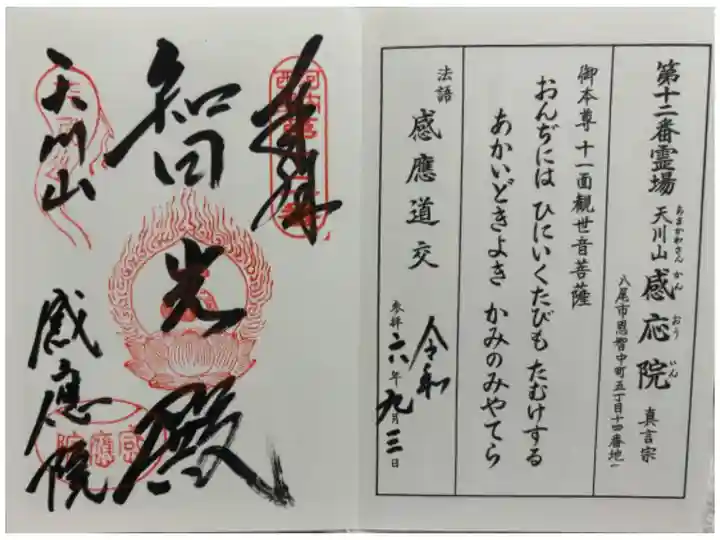 第十二番霊場 天川山 感応院 真言宗
あまかわさん かん おう いん
八尾市恩智中町五丁目十四番地一
御本尊 十一面観世音菩薩
おんぢには ひにいくたびも たむけする
あかいどきよき かみのみやてら
法語 感應道交
令和
参拝 六年 九月 三日
奉拝
智光殿
天川山 感應院
感應院